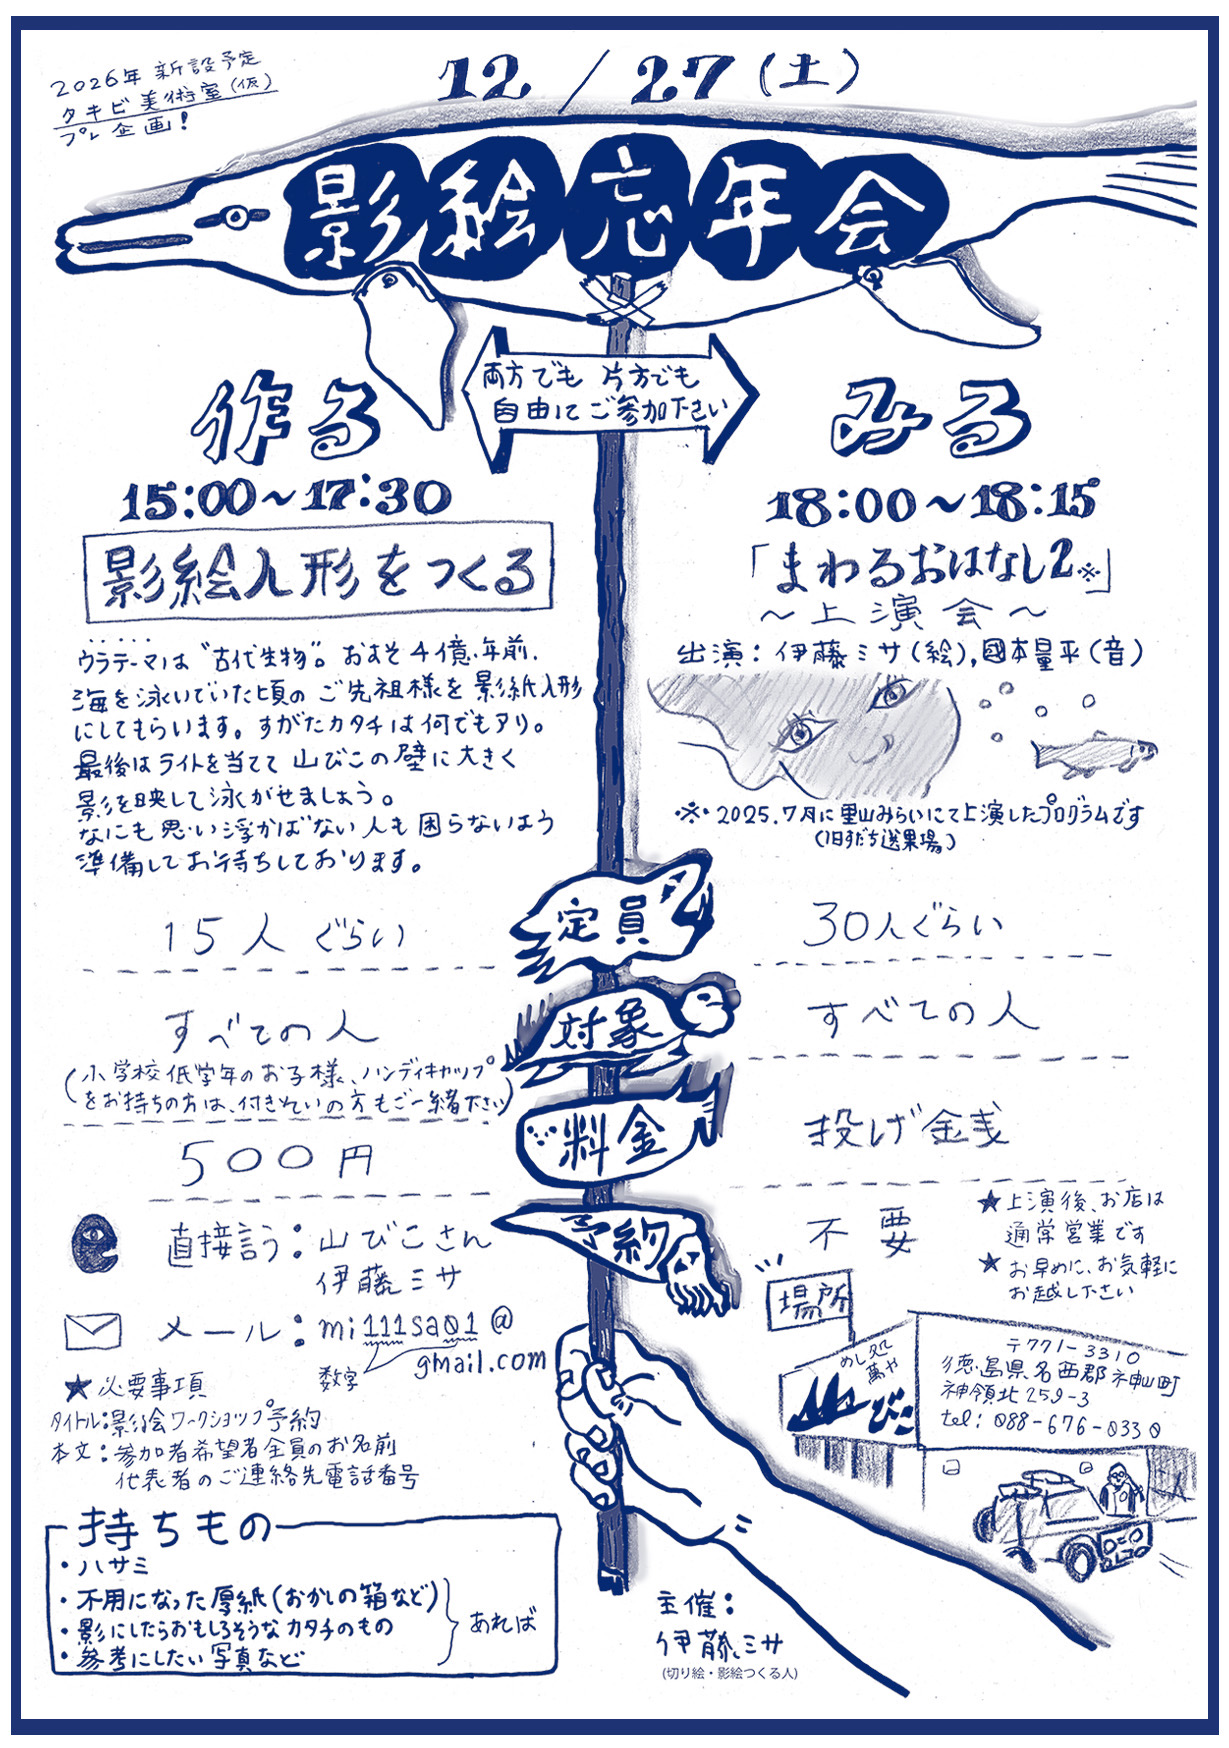 2026年 新設予定
タキビ美術室(仮)
プレ企画!
12/27(土)
影絵忘年会
両方でも 片方でも
自由にご参加下さい
作る
15:00～17:30
影絵人形をつくる
ウラテーマは“古代生物”。およそ4億年前、
海を泳いでいた頃のご先祖様を影絵人形
にしてもらいます。すがたカタチは何でもアリ。
最後はライトを当てて山びこの壁に大きく
影を映して泳がせましょう。
なにも思い浮かばない人も困らないよう
準備してお待ちしております。
みる
18:00～18:15
「まわるおはなし2※」
～上演会～
出演:伊藤ミサ(絵),國本量平(音)
※2025.7月に里山みらいにて上演したプログラムです
(旧すだち選果場)
定員
15人ぐらい
30人ぐらい
対象
すべての人
(小学校低学年のお子様、ハンディキャップ
をお持ちの方は、付きそいの方もご一緒下さい)
すべての人
料金
500円
投げ金銭
予約
直接言う:山びこさん
伊藤ミサ
メール:mi111sa01@
gmail.com
数字
★必要事項
タイトル:影絵ワークショップ予約
本文:参加者希望者全員のお名前
代表者のご連絡先電話番号
不要
★上演後、お店は
通常営業です
★お早めに、お気軽に
お越し下さい
場所
めし処
萬や
山びこ
〒771-3310
徳島県名西郡神山町
神領北259-3
tel:088-676-0330
持ちもの
・ハサミ
・不用になった厚紙(おかしの箱など)
・影にしたらおもしろそうなカタチのもの
・参考にしたい写真など
あれば
主催:
伊藤ミサ
(切り絵・影絵つくる人)